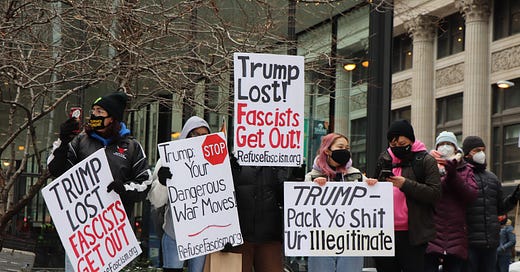 TRUMP
LOST,
FASCISTS
GET OUT
RefuseFascism.org
STOP
Trump:
Your
Dangerous
War Moves.
Refusefascism.org
Trump
Lost!
Fascists
Get Out!
RefuseFascism.org
TRUMP-
Pack Yo' Shit
Ur Illegitimate